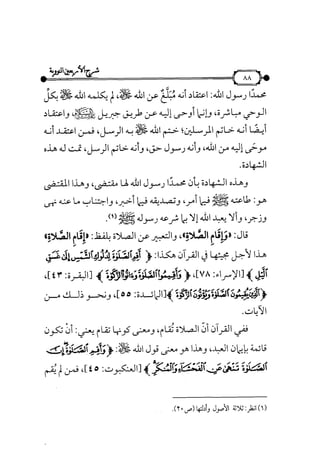 شرح الأربعين النووية
٨٨
محمدًا رسول الله: اعتقاد أنه مُبَلِّغٌ عن الله ﷺ، لم يكلمه الله ﷺ بكل
الوحي مباشرة، وإنما أوحى إليه عن طريق جبريل ﷺ، واعتقاد
أيضًا أنه خاتم المرسلين؛ ختم الله ﷺ به الرسل، فمن اعتقد أنه
موحًى إليه من الله، وأنه رسول حق، وأنه خاتم الرسل، تمت له هذه
الشهادة.
وهذه الشهادة بأن محمدًا رسول الله لها مقتضى، وهذا المقتضى
هو: طاعته ﷺ فيما أمر، وتصديقه فيما أخبر، واجتناب ما عنه نهى
وزجر، وألا يعبد الله إلا بما شرعه رسوله ﷺ(١).
قال: «وَإِقَامِ الصَّلاةِ»، والتعبير عن الصلاة بلفظ: «إِقَامِ الصَّلاةِ»
هذا لأجل مجيئها في القرآن هكذا: ﴿أَقِمِ الصَّلَوٰةَ لِدُلُوكِ الشَّمْسِ إِلَىٰ غَسَقِ
الَّيْلِ﴾ [الإسراء: ٧٨]، ﴿وَأَقِيمُوا الصَّلَوٰةَ وَءَاتُوا الزَّكَوٰةَ﴾ [البقرة: ٤٣]،
﴿الَّذِينَ يُقِيمُونَ الصَّلَوٰةَ وَيُؤْتُونَ الزَّكَوٰةَ﴾ [المائدة: ٥٥]، ونحو ذلك من
الآيات.
ففي القرآن أنّ الصلاة تُقام، ومعنى كونها تقام يعني: أنْ تكون
قائمة بإيمان العبد، وهذا هو معنى قول الله ﷺ: ﴿وَأَقِمِ الصَّلَوٰةَ إِنَّ
الصَّلَوٰةَ تَنْهَىٰ عَنِ الْفَحْشَاءِ وَالْمُنكَرِ﴾ [العنكبوت: ٤٥]، فمن لم يُقم
(١) انظر: ثلاثة الأصول وأدلتها (ص٢٠).